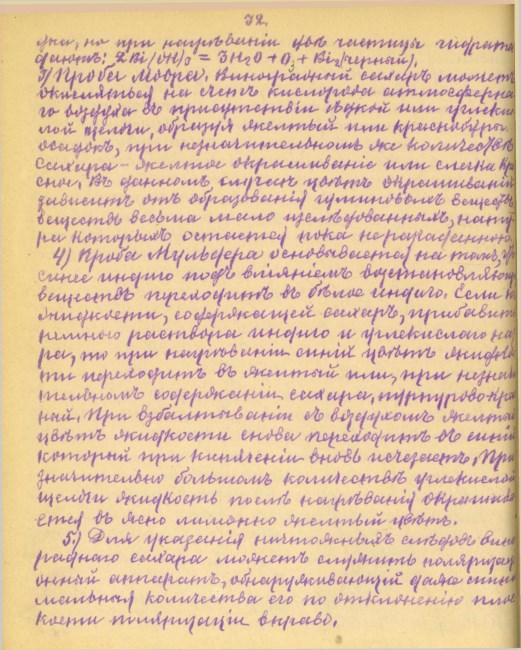 32.
джа, но при нагрѣваніи двѣ частицы гидрата
даютъ: 2Bi(OH)₃ = 3H₂O + O₃ + Bi₂ (черный).
3) Проба Мюора. Виноградный сахаръ можетъ
окисляться на счетъ кислорода атмосферна-
го воздуха въ присутствіи ѣдкой или углекис-
лой щелочи, образуя желтый или краснобурый
осадокъ, при незначительномъ же количествѣ
сахара – желтое окрашиваніе или слегка кра-
сное. Въ данномъ случаѣ цвѣтъ окрашиванія
зависитъ отъ образованія гуминовыхъ веществъ,
веществъ весьма мало изслѣдованныхъ, нату-
ра которыхъ остается пока неразгаданною.
4) Проба Мульдера основывается на томъ, что
синее индиго подъ вліяніемъ возстановляющ.
веществъ переходитъ въ бѣлое индиго. Если къ
жидкости, содержащей сахаръ, прибавить
немного раствора индиго и углекислаго на-
тра, то при нагрѣваніи синій цвѣтъ жидкос-
ти переходитъ въ желтый или, при незначи-
тельномъ содержаніи сахара, пурпурово-крас-
ный. При взбалтываніи съ воздухомъ желтый
цвѣтъ жидкости снова переходитъ въ синій
который при кипяченіи вновь исчезаетъ. При
значительно большомъ количествѣ углекислой
щелочи жидкость послѣ нагрѣванія окрашива-
ется въ ясно лимонно желтый цвѣтъ.
5) Для указанія ничтожныхъ слѣдовъ вино-
граднаго сахара можетъ служить поляризаці-
онный аппаратъ, обнаруживающій даже мини-
мальныя количества его по отклоненію плос-
кости поляризаціи вправо.